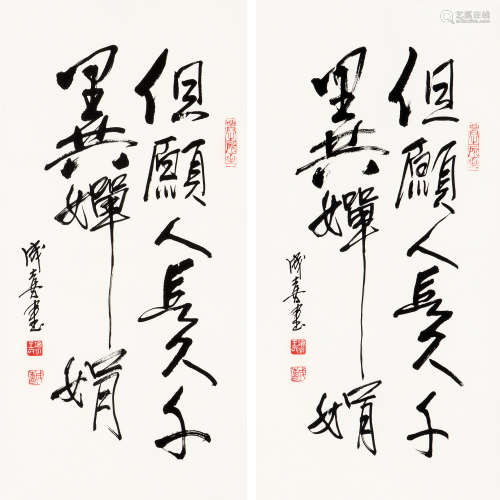 但願人長久千
里共嬋娟
成喜書
但願人長久千
里共嬋娟
成喜書